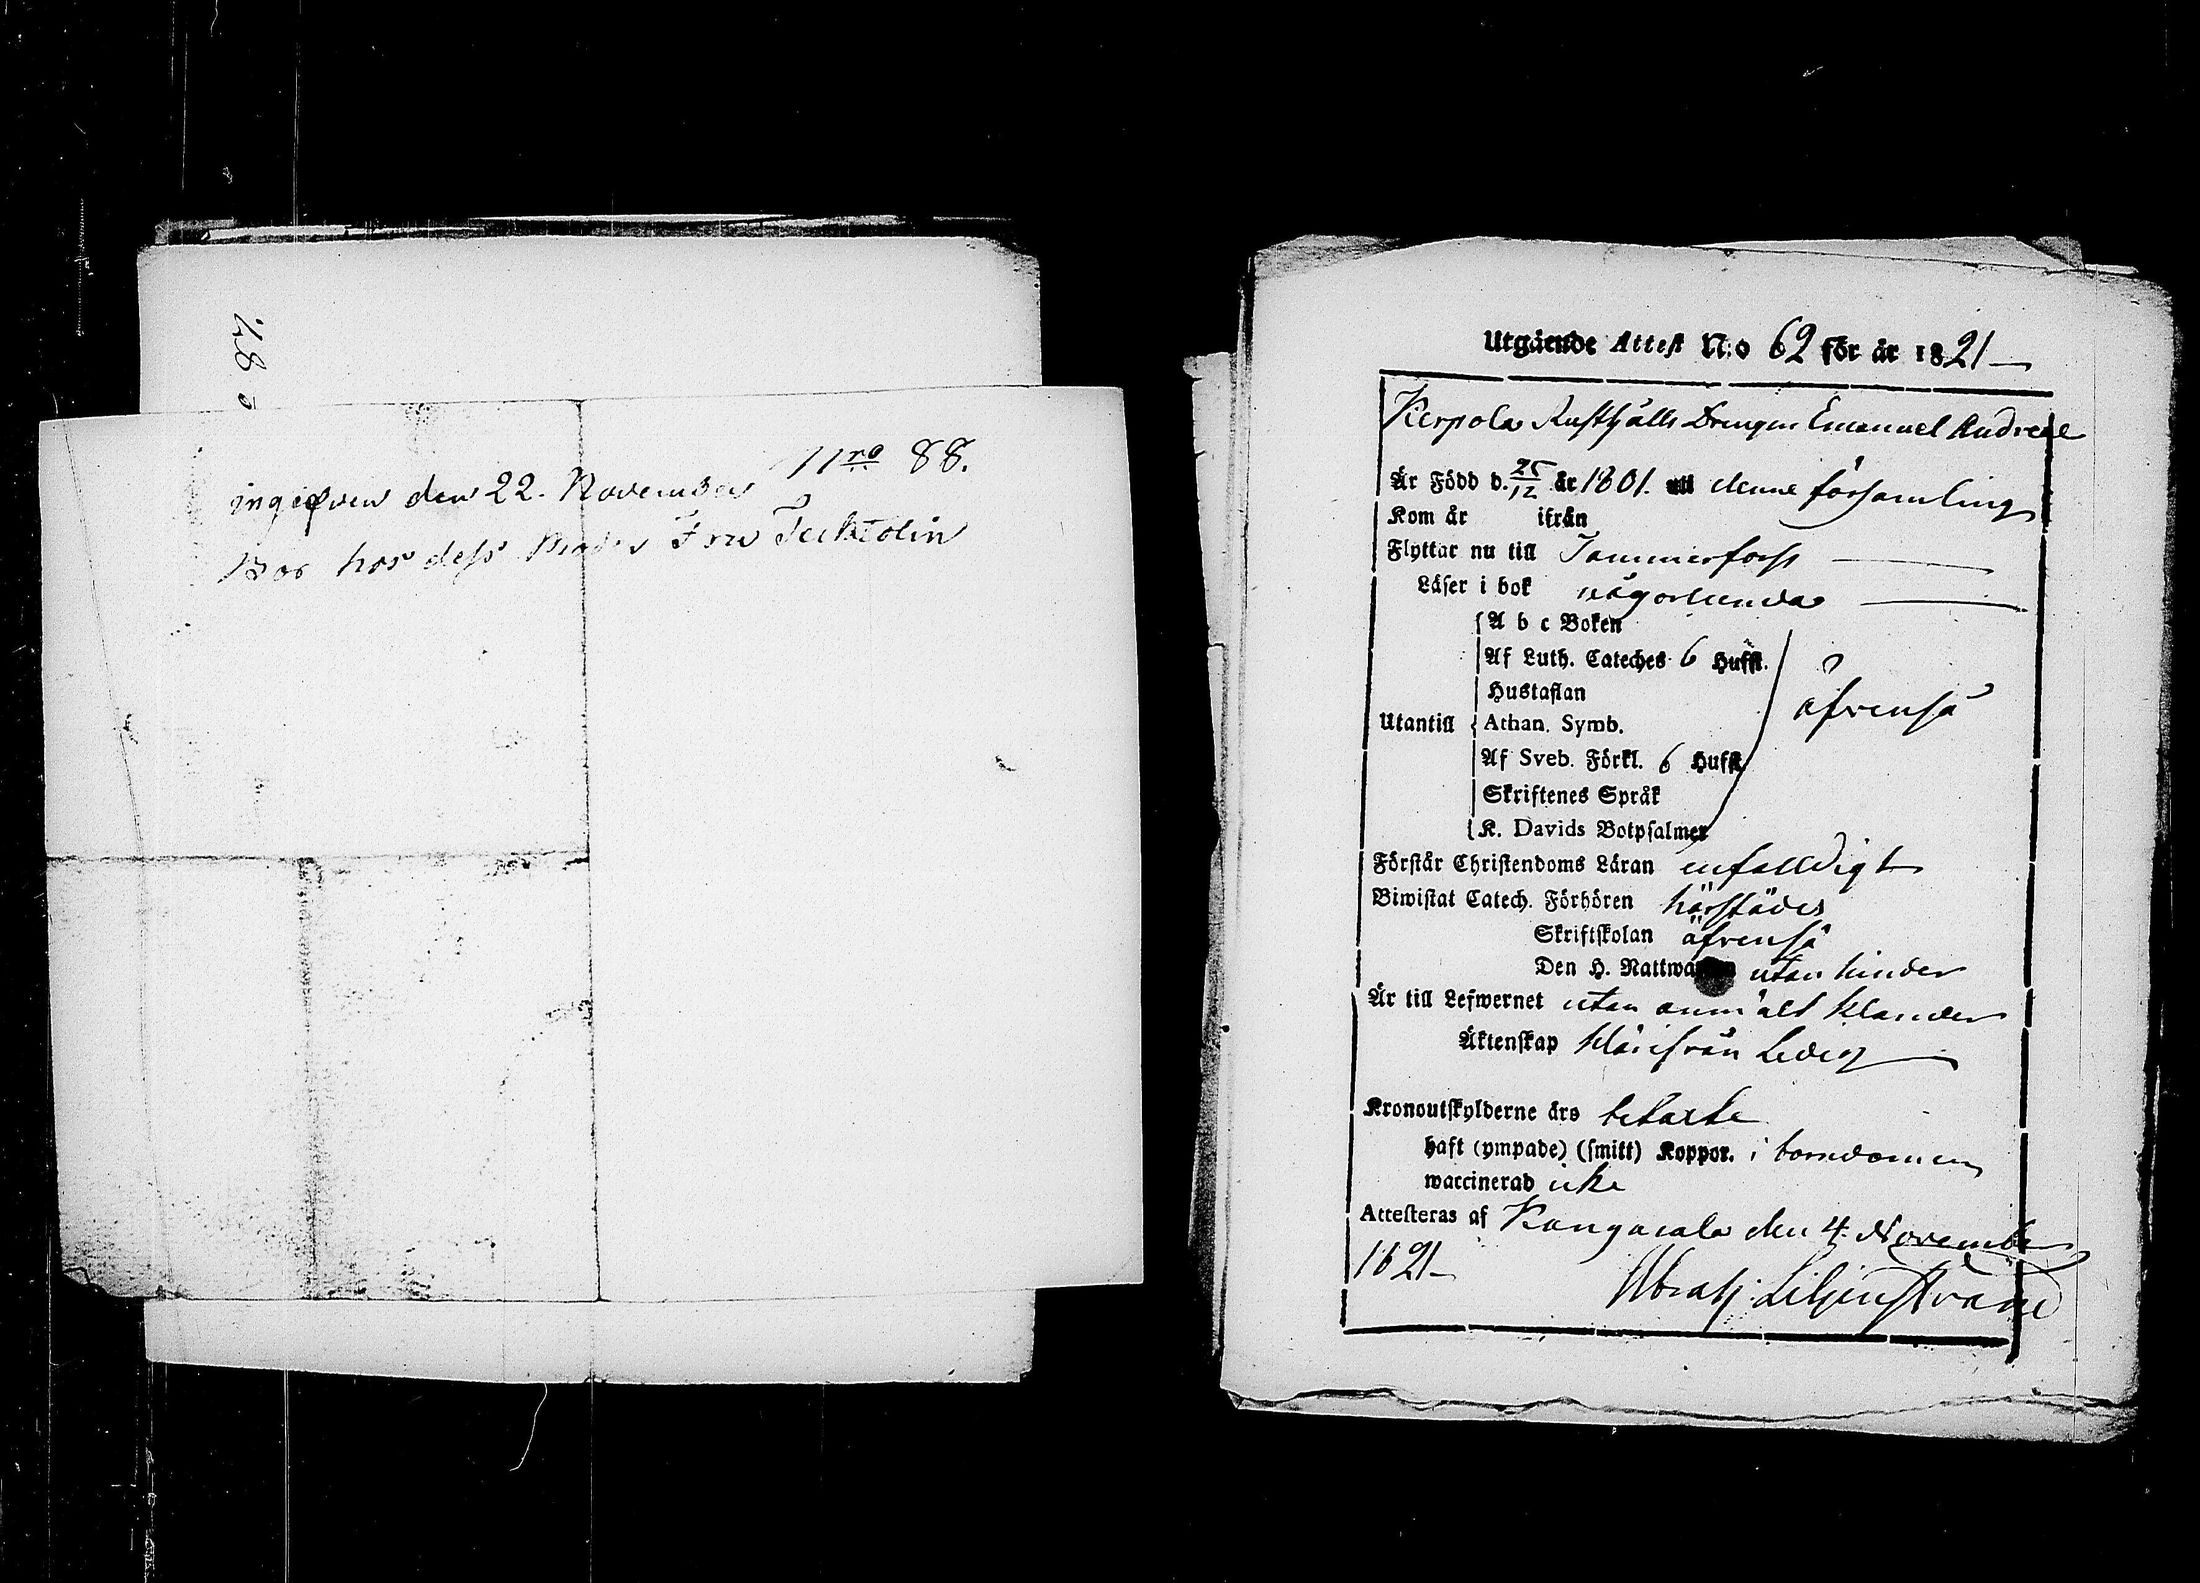 11ro 88.
ingifven den 22. November
Bor hos dess Moder Fru Tecktolin
Utgående Attest N:o 62 för år 1821
Kerpola Rusthålls Drengen Emanuel Andreae
Är Född d. 25/12 år 1801. uti denne församling
Kom år ifrån
Flyttar nu till Tammerfors
Läser i bok någorlunda
A b c Boken
Af Luth. Cateches 6 Huffst.
Hustaflan
Utantill Athan. Symb. äfvenså
Af Sveb. Förkl. 6 Hufst.
Skriftenes Språk
K. Davids Botpsalmer
Förstår Christendoms Läran enfalldigt
Biwistat Catech. Förhören härstädes
Skriftskolan äfvenså
Den H. Nattwarden utan hinder
Är till Lefwernet utan anmält klander
Äktenskap härifrån Ledig
Kronoutskylderne års betalte
haft (ympade) (smitt) Koppor. i barndomen
waccinerad icke
Attesteras af Kangasala den 4. November
1821
Abrah: Liljenstrand